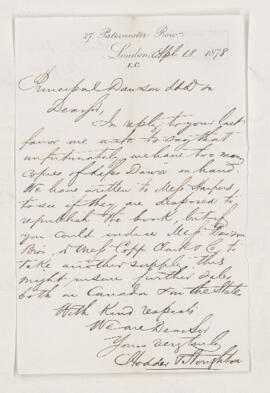 27, Paternoster Row,
London, Apl 18 1878
E.C.
Principal Dawson
Dear Sir,
In reply to your last
favor we have to say that
unfortunately we have too many
copies of Life's Dawn on hand.
We have written to Messrs Harpers
to see if they are disposed to
republish the book, but if
you could induce Messrs Dawson
Bros, or Messrs Copp Clark & Co to
take another supply this
might insure further sales
both in Canada & in the States
With Kind respects
We are Dear Sir
Yours very truly
Hodder & Stoughton